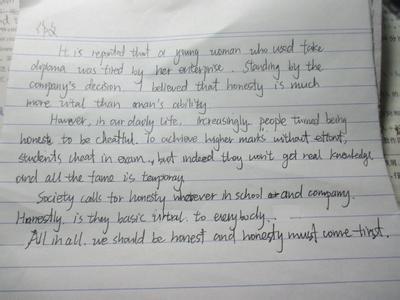 It is reported that a young woman who used fake
diploma was fired by her enterprise. Standing by the
company's decision, I believed that honesty is much
more vital than aman's ability.
However, in our dayly life, increasingly people turned being
honest to be cheatful. To achieve higher marks without effort,
students cheat in exam, but indeed they won't get real knowledge
and all the fame is temporay
Society calls for honesty wherever in school and company.
Honestly is they basic to everybody.
All in all, we should be honest and honesty must come first.